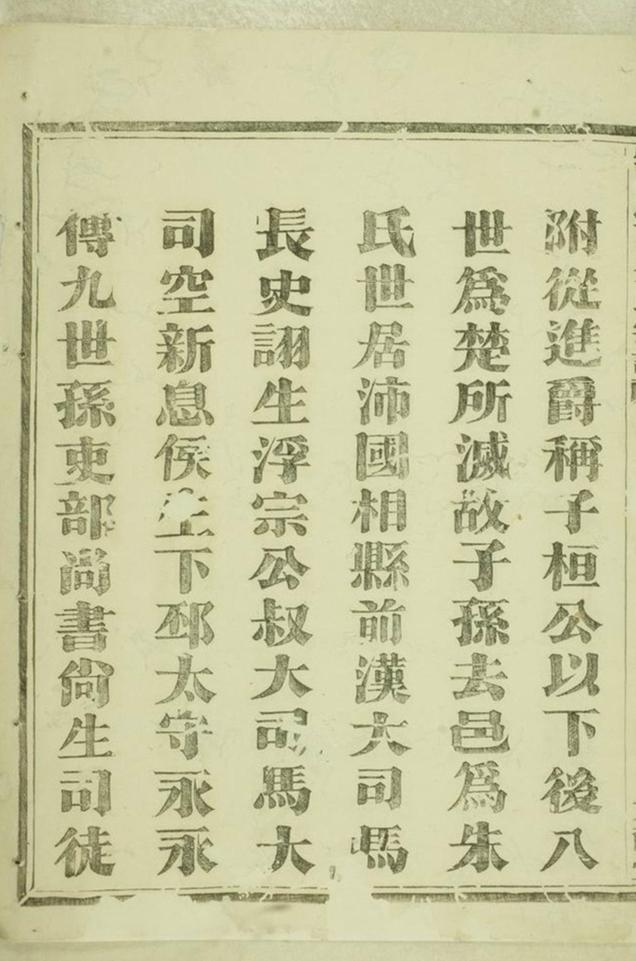 附從進爵稱子桓公以下後八
世爲楚所滅故子孫去邑爲朱
氏世居沛國相縣前漢大司馬
長史詡生浮宗公叔大司馬大
司空新息侯生下邳太守永永
傳九世孫吏部尚書尚生司徒